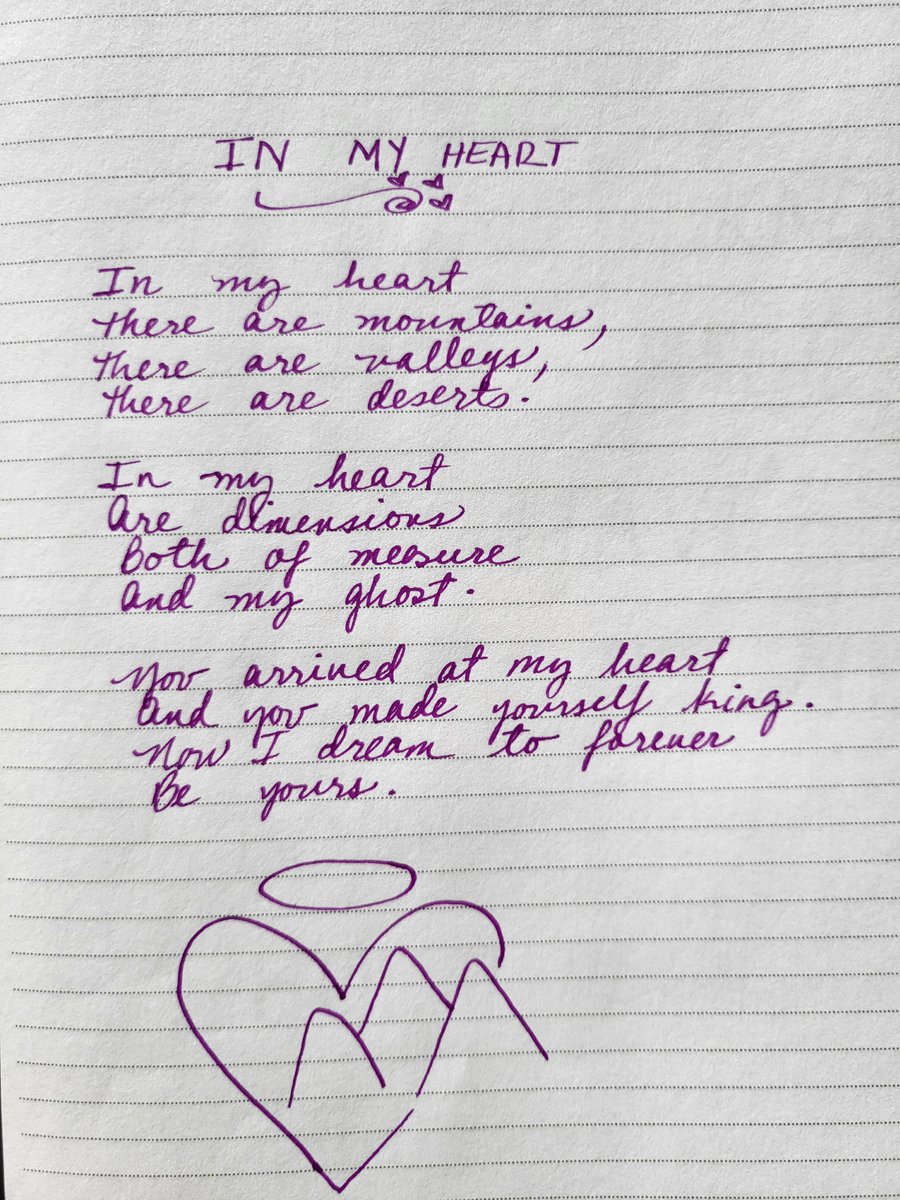 IN MY HEART
In my heart
there are mountains,
there are valleys,
there are deserts.
In my heart
Are dimensions
Both of measure
And my ghost.
You arrived at my heart
And you made yourself king.
Now I dream to forever
Be yours.